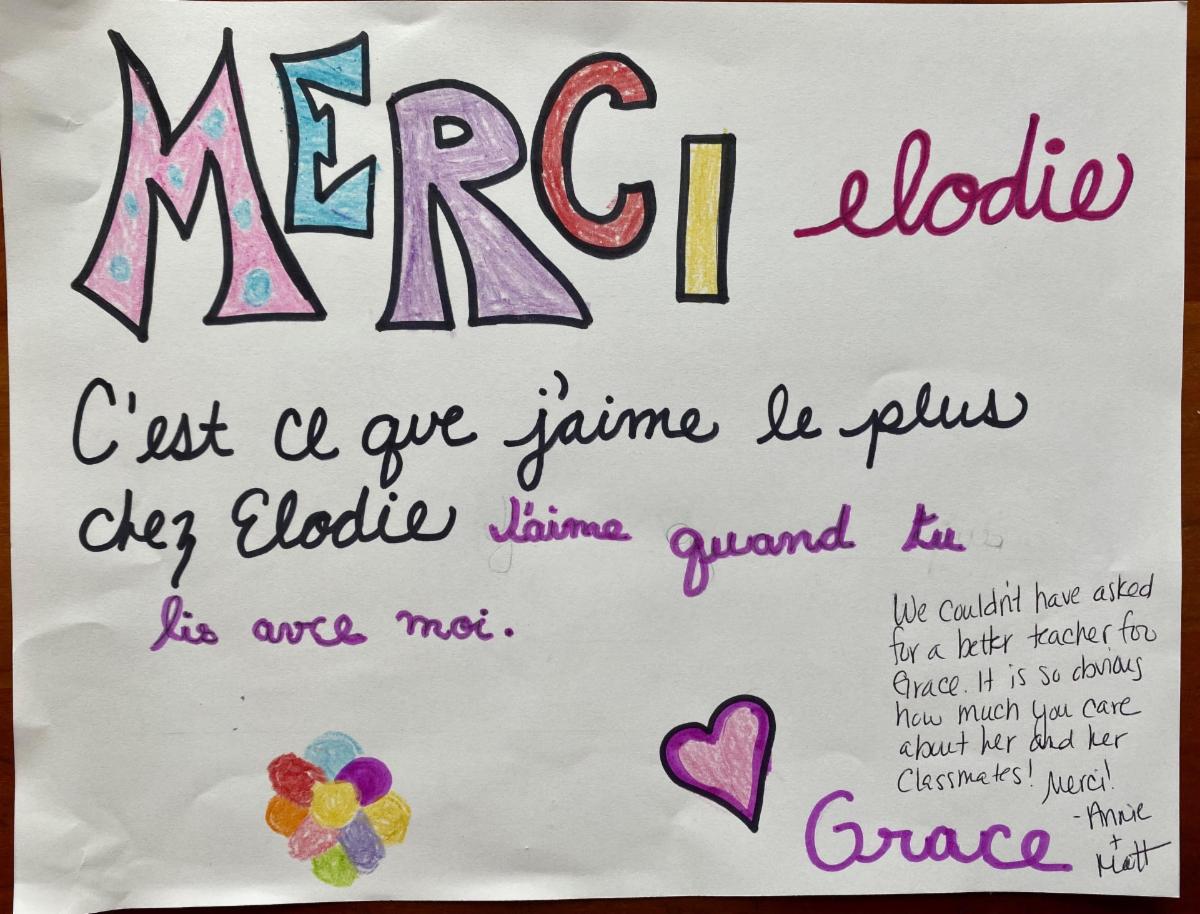 MERCI elodie
C'est ce que j'aime le plus
chez Elodie j'aime quand tu
lis avce moi.
We couldn't have asked
for a better teacher for
Grace. It is so obvious
how much you care
about her and her
Classmates! Merci!
- Annie
+
Matt
Grace